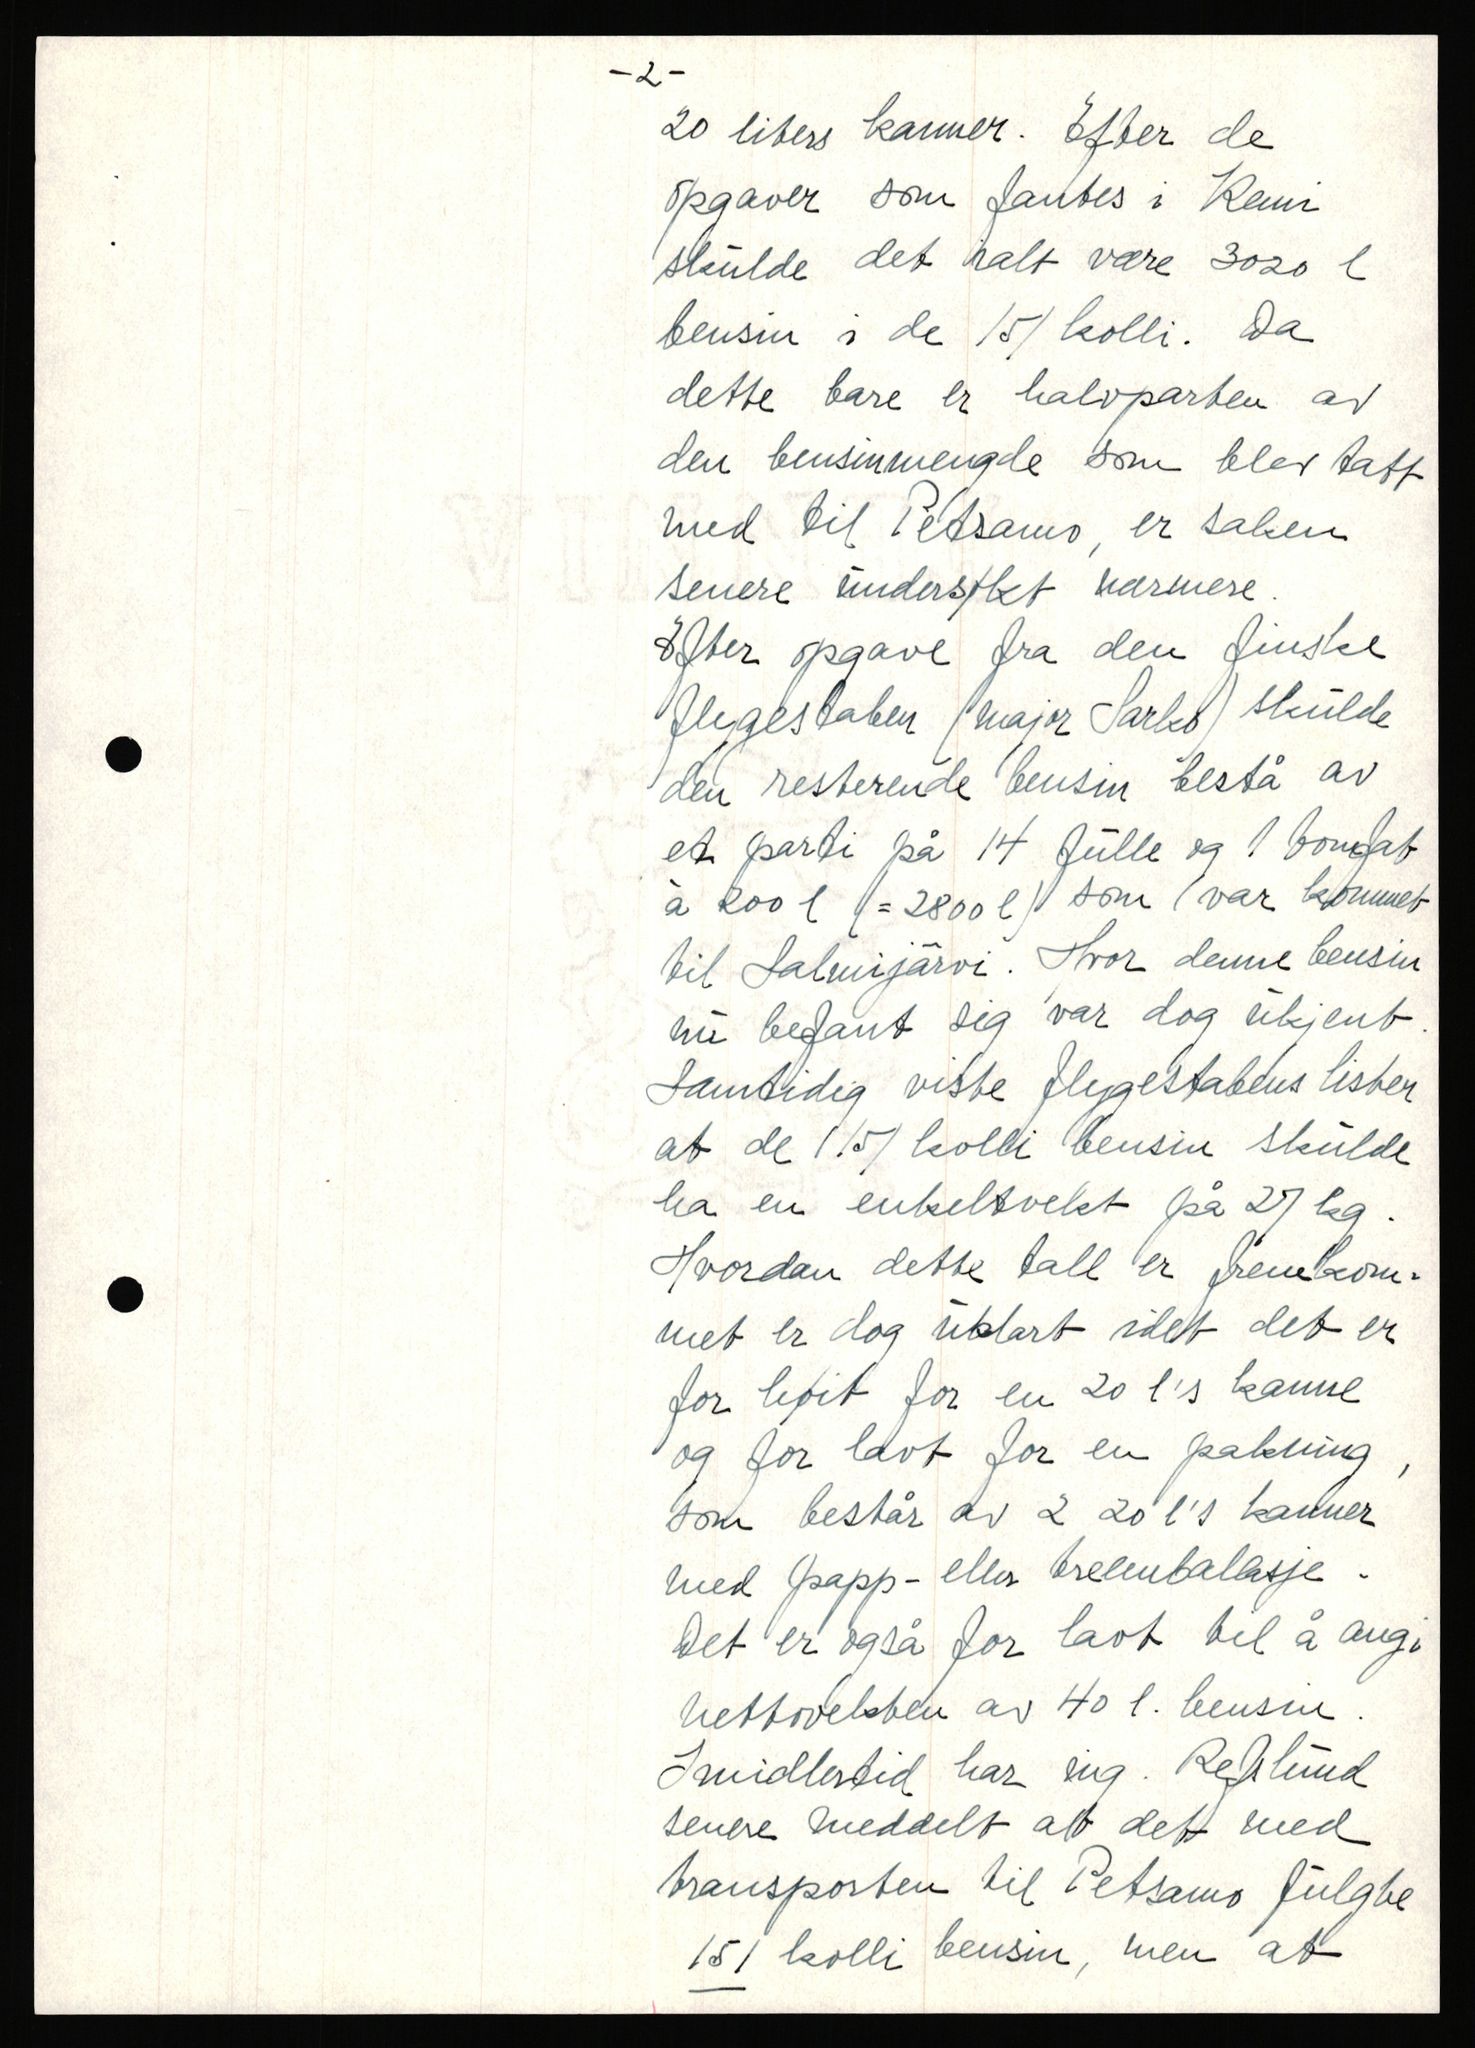 -2-
20 liters kanner. Efter de
opgaver som fantes i Kemi
skulde det ialt være 3020 l
bensin i de 151 kolli. Da
dette bare er halvparten av
den bensinmengde som blev tatt
med til Petsamo, er saken
senere undersøkt nærmere.
Efter opgave fra den finske
flygestaben (major Sarko) skulde
den resterende bensin bestå av
et parti på 14 fulle og 1 tomfat
à 200 l (=2800 l) som var kommet
til Salmijärvi. Hvor denne bensin
nu befant sig var dog ukjent.
Samtidig viste flygestabens lister
at de 151 kolli bensin skulde
ha en enkeltvekt på 27 kg.
Hvordan dette tall er fremkom-
met er dog uklart idet det er
for høit for en 20 l's kanne
og for lavt for en pakning,
som består av 2 20 l's kanner
med papp- eller treembalasje.
Det er også for lavt til å angi
nettovekten av 40 l. bensin.
Imidlertid har ing. Refslund
senere meddelt at det med
transporten til Petsamo fulgte
151 kolli bensin, men at